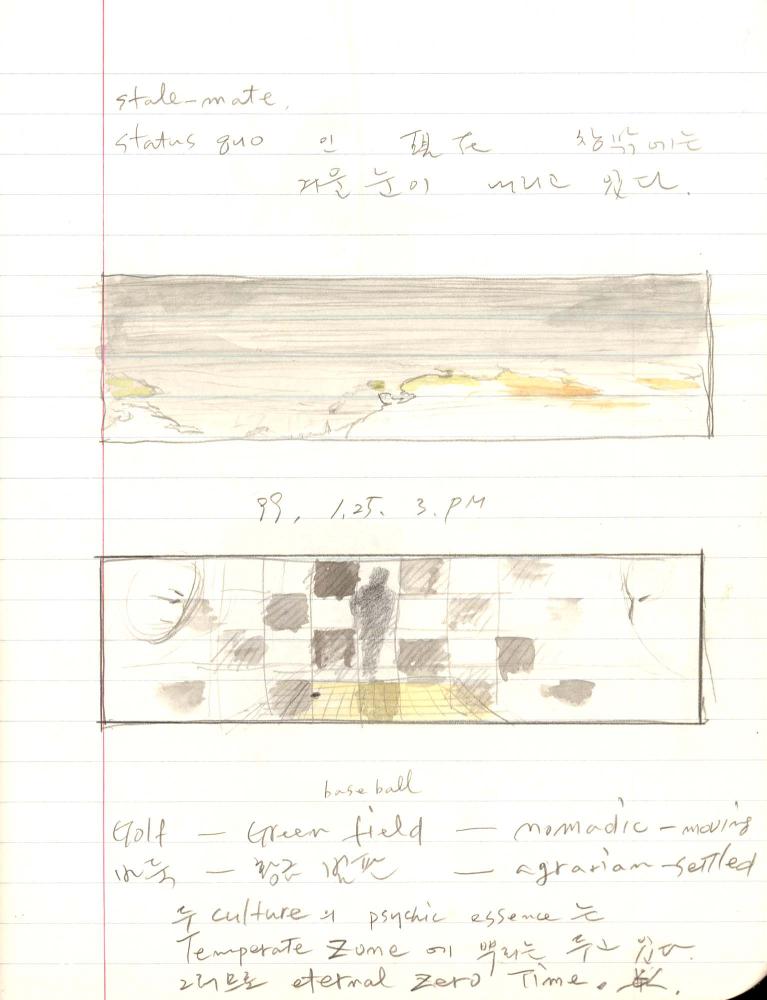 stale-mate.
status quo 인 現在 창밖에는
겨울 눈이 내리고 있다.
99, 1.25. 3. PM
baseball
Golf — Green field — nomadic - moving
바둑 — 황금 벌판 — agrarian-settled
두 culture의 psychic essence는
Temperate Zone에 뿌리는 두고 있다.
그러므로 eternal zero Time.